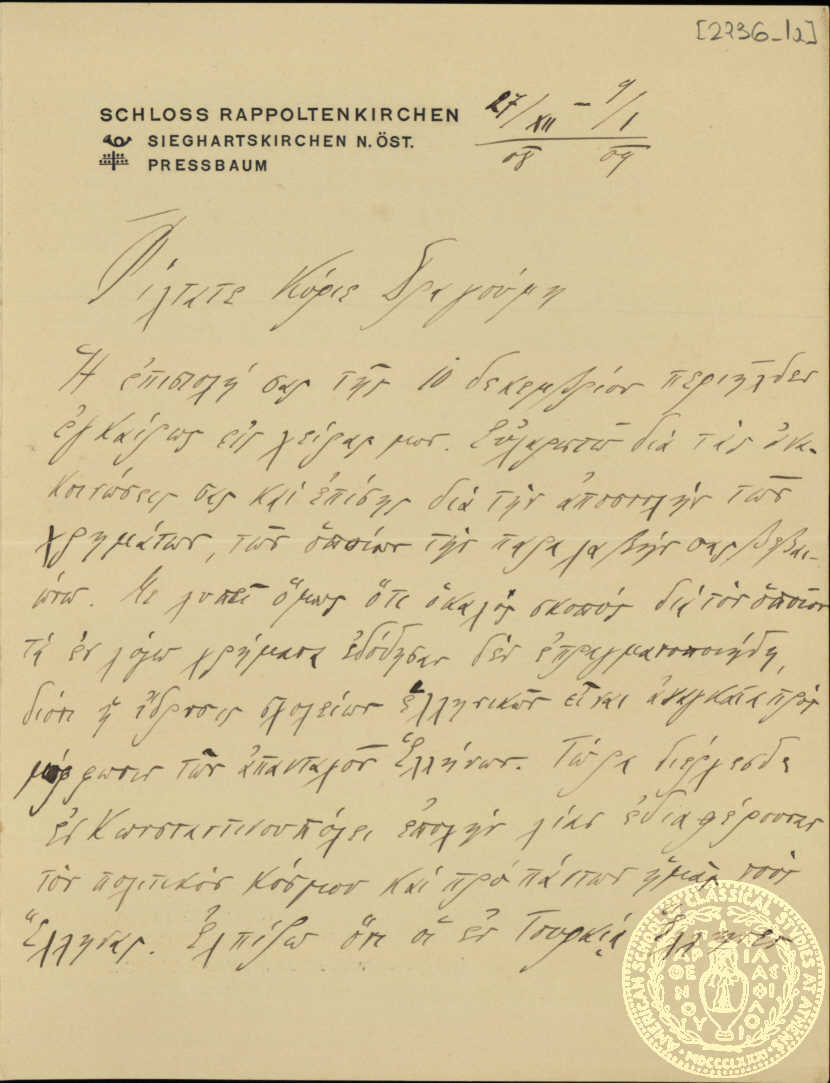 [2236-12]
SCHLOSS RAPPOLTENKIRCHEN
SIEGHARTSKIRCHEN N. ÖST.
PRESSBAUM
27/XII - 9/I
08 09
Φίλτατε Κύριε Δραγούμη
Ἡ ἐπιστολή σας τῆς 10 δεκεμβρίου περιῆλθεν
ἐγκαίρως εἰς χεῖρας μου. Εὐχαριστῶ διὰ τὰς ἀνα-
κοινώσεις σας καὶ ἐπίσης διὰ τὴν ἀποστολὴν τῶν
χρημάτων, τῶν ὁποίων τὴν παραλαβὴν σας βεβαι-
ώνω. Με λυπεῖ ὅμως ὅτι ὁ καλὸς σκοπός διὰ τὸν ὁποῖον
τὰ ἐν λόγῳ χρήματα ἐδόθησαν δὲν ἐπραγματοποιήθη,
διότι ἡ ἵδρυσις σχολείων ἑλληνικῶν εἶναι ἀναγκαῖα πρὸς
μόρφωσιν τῶν ἁπανταχοῦ Ἑλλήνων. Τώρα διέρχεσθε
ἐν Κωνσταντινουπόλει ἐποχὴν λίαν ἐνδιαφέρουσαν
τὸν πολιτικὸν κόσμον καὶ πρὸ πάντων ἡμᾶς τοὺς
Ἕλληνας. Ἐλπίζω ὅτι οἱ ἐν Τουρκίᾳ Ἕλληνες
AMERICAN SCHOOL OF CLASSICAL STUDIES AT ATHENS
MDCCCLXXXI
ΠΑΡΘΕΝΟΥ ΦΙΛΑΣ ΦΙΛΟΙ